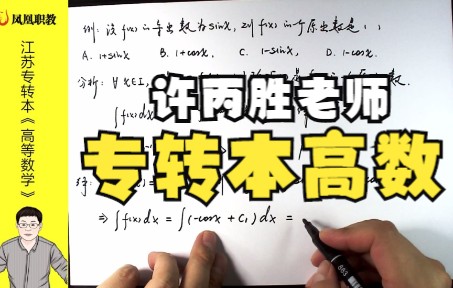 凤凰职教
江苏专转本《高等数学》
例：设 f(x) 的导函数为 sinx，则 f(x) 的一个原函数是（ ）
A. 1+sinx B. 1+cosx C. 1-sinx, D. 1-cosx.
分析：∀x∈I,
∫f(x)dx
许丙胜老师
专转本高数
⇒ ∫f(x)dx = ∫(-cosx + C₁)dx =